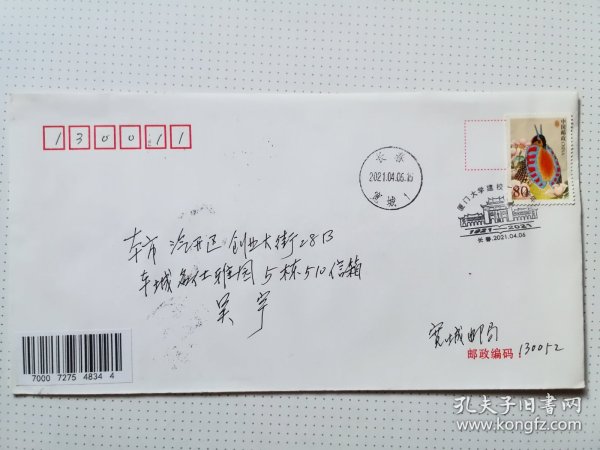 130011
中国邮政
80
长春
2021.04.06.16
宽城 1
厦门大学建校
1921—2021
长春.2021.04.06
本市 汽开区 创业大街28B
车城名仕雅园5栋510信箱
吴宇
宽城邮局
邮政编码 130052
7000 7275 4834 4
孔夫子旧书网